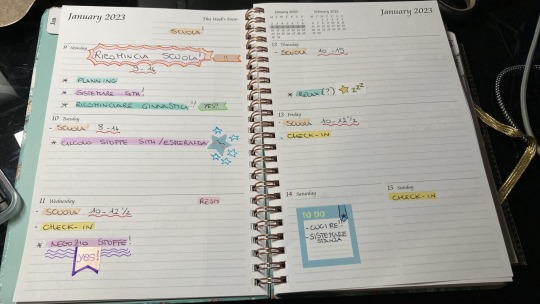 January 2023
The Week's Focus
SCUOLA!
9 Monday
RICOMINCIA SCUOLA!
9-14
* PLANNING
* SISTEMARE SITH!
* RICOMINCIARE GINNASTICA!!
YES!
10 Tuesday
- SCUOLA 8-14
* CALCOLO STOFFE SITH/ESMERALDA
11 Wednesday
- SCUOLA 10-12½
- CHECK-IN
* NEGOZIO STOFFE!
yes!
January 2023
February 2023
January 2023
12 Thursday
- SCUOLA 10-15
* RELAX (?)
zzz
13 Friday
- SCUOLA 10-12½
- CHECK-IN
14 Saturday
TO DO
- CUCIRE!
- SISTEMARE
STANZA
15 Sunday
CHECK-IN